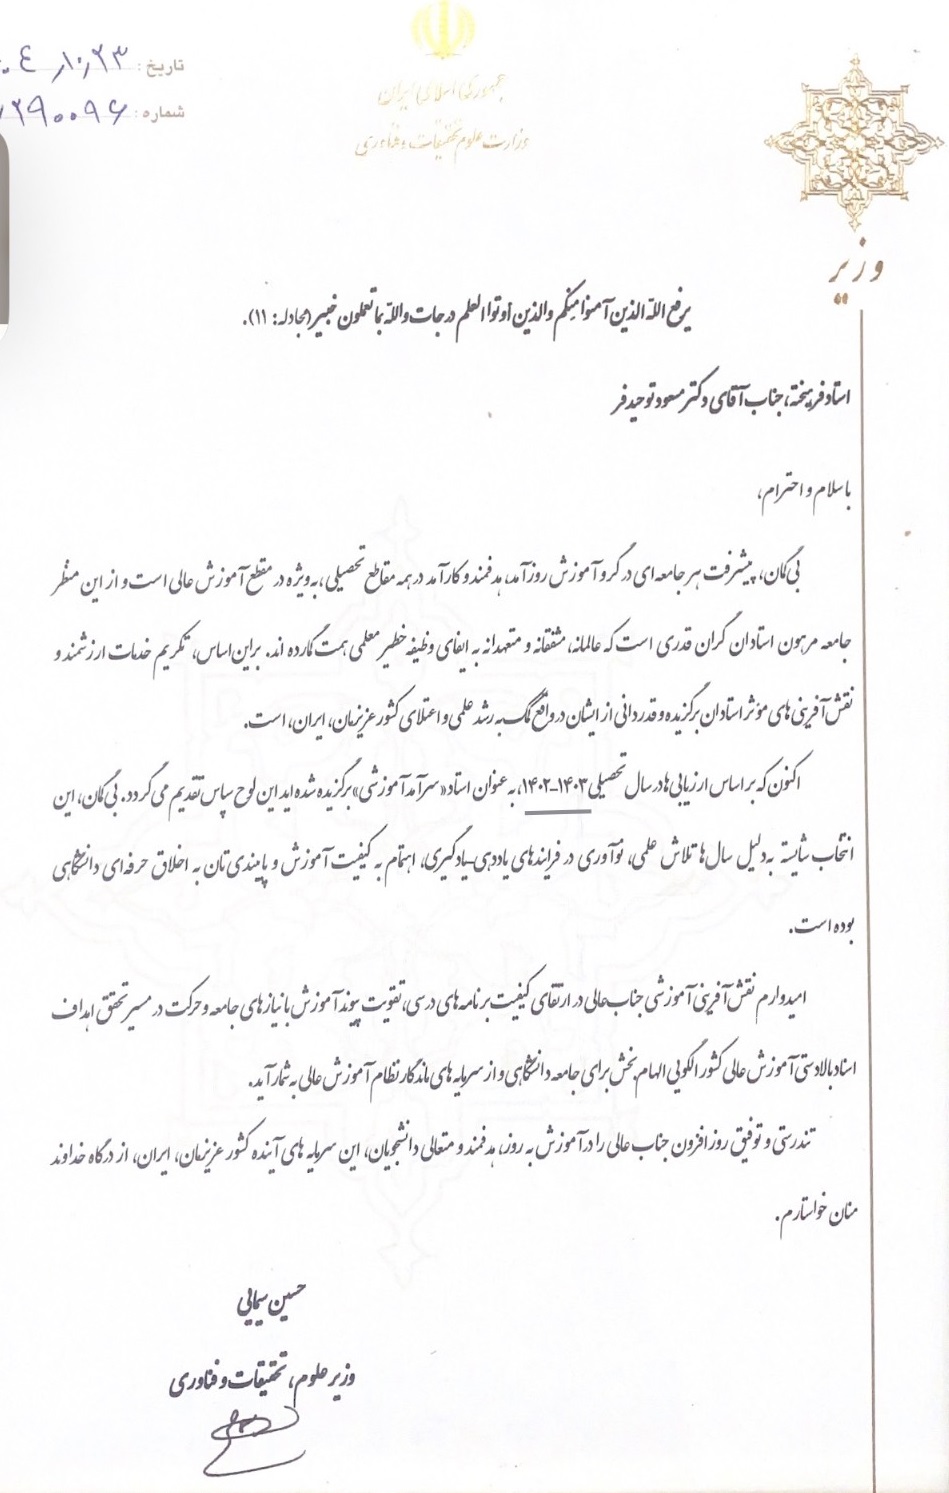 جمهوری اسلامی ایران
وزارت علوم تحقیقات و فناوری
تاریخ :
شماره :
وزیر
یرفع الله الذین آمنوا منکم والذین أوتوا العلم درجات والله بما تعملون خبیر (مجادله: ۱۱).
استاد فرهیخته، جناب آقای دکتر مسعود توحیدفر
با سلام و احترام،
بی‌گمان، پیشرفت هر جامعه‌ای در گرو آموزش روزآمد، هدفمند و کارآمد در همه مقاطع تحصیلی، به‌ویژه در مقطع آموزش عالی است و از این منظر
جامعه مرهون استادان گران قدری است که عالمانه، مشفقانه و متعهدانه به ایفای وظیفه خطیر معلمی همت گمارده اند. براین اساس، تکریم خدمات ارزشمند و
نقش آفرینی های مؤثر استادان برگزیده و قدردانی از ایشان در واقع کمک به رشد علمی و اعتلای کشور عزیزمان، ایران، است.
اکنون که بر اساس ارزیابی ها در سال تحصیلی ۱۴۰۳-۱۴۰۲، به عنوان استاد «سرآمد آموزشی» برگزیده شده اید این لوح سپاس تقدیم می گردد. بی گمان، این
انتخاب شایسته به دلیل سال ها تلاش علمی، نوآوری در فرایندهای یاددهی-یادگیری، اهتمام به کیفیت آموزش و پایبندی تان به اخلاق حرفه ای دانشگاهی
بوده است.
امیدوارم نقش آفرینی آموزشی جناب عالی در ارتقای کیفیت برنامه های درسی، تقویت پیوند آموزش با نیازهای جامعه و حرکت در مسیر تحقق اهداف
اسناد بالادستی آموزش عالی کشور الگویی الهام بخش برای جامعه دانشگاهی و از سرمایه های ماندگار نظام آموزش عالی به شمار آید.
تندرستی و توفیق روزافزون جناب عالی را در آموزش به روز، هدفمند و متعالی دانشجویان، این سرمایه های آینده کشور عزیزمان، ایران، از درگاه خداوند
منان خواستارم.
حسین سیمایی
وزیر علوم، تحقیقات و فناوری